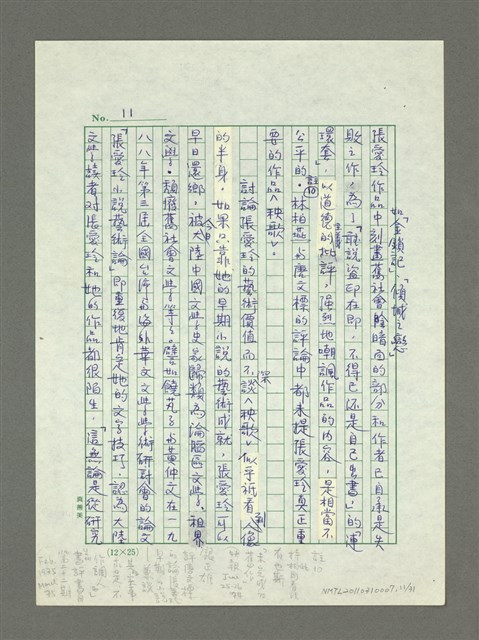 No. 11
如「金鎖記」「傾城之戀」
張愛玲作品中刻畫舊社會陰暗面的部分和作者已自承是失
敗之作，為了「聽說盜印在即，不得已還是自己出書」的「連
環套」，以道德的批評，強烈地嘲諷作品的內容，是相當不
註10
主義者
公平的。林柏燕與唐文標的評論中都未提張愛玲真正重
要的作品〈秧歌〉。
討論張愛玲的藝術價值而不談〈秧歌〉似乎祇看到人像
的半身，如果只靠她的早期小說的藝術成就，張愛玲可以
早日還鄉，被今日大陸中國文學史家歸類為淪陷區文學。租界
文學。頹廢舊社會文學等等。譬如饒芃子與黃仲文在一九
八八年第三屆全國台港與海外華文文學學術研討會的論文
「張愛玲小說藝術論」即重複地肯定她的文字技巧。認為大陸
文學讀者對張愛玲和她的作品都很陌生，「這無論是從研究
(12×25)
註10
NMTL20110310007, 11/31